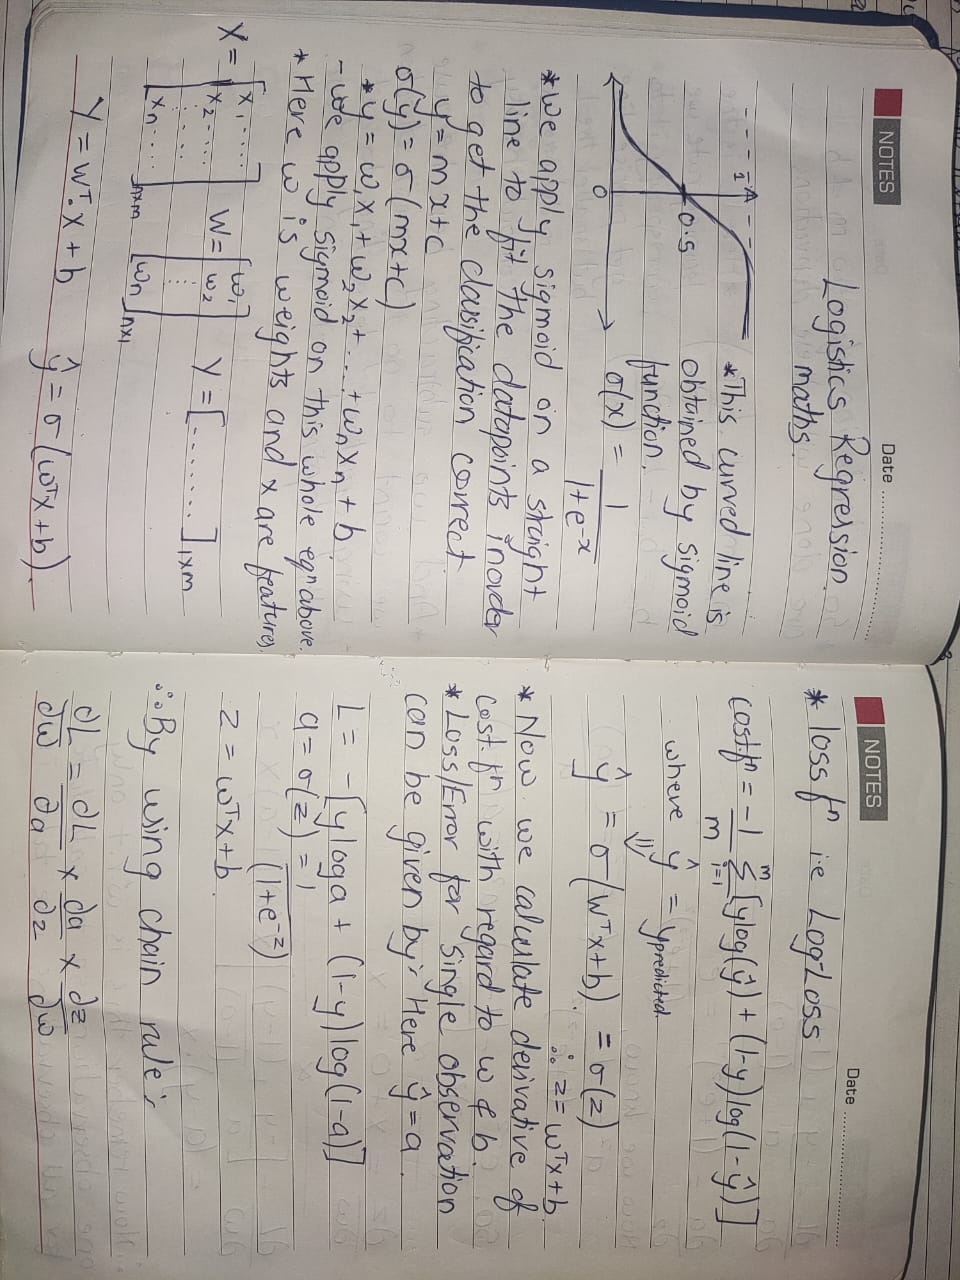 NOTES
Date
Logistics Regression
maths.
1
0.5
0
*This curved line is
obtained by sigmoid
function.
σ(x) = 1 / 1+e^-x
*We apply sigmoid on a staight
line to fit the datapoints inorder
to get the classification correct.
y = mx+c
σ(y) = σ(mx+c)
*y = w₁x₁+w₂x₂+....+wₙxₙ+b.
-we apply sigmoid on this whole eqⁿ above.
* Here w is weights and x are features.
X = [x₁..... x₂..... ..... xₙ....]n×m W = [w₁ w₂ ⋮ wₙ]n×1 Y = [.......]1×m
Y = wᵀ.x + b ŷ = σ(wᵀx+b).
NOTES
Date
* loss fⁿ i.e Log-Loss
cost fⁿ = -1/m Σ i=1 m [ylog(ŷ) + (1-y)log(1-ŷ)]
where ŷ = ypredicted.
⇓
ŷ = σ(wᵀx+b) = σ(z)
∴ z = wᵀx+b.
* Now we calculate derivative of
cost fⁿ with regard to w & b.
* Loss/Error for single observation
can be given by:- Here ŷ = a.
L = -[yloga + (1-y)log(1-a)]
a = σ(z) = 1 / (1+e^-z)
z = wᵀx+b.
∴ By using chain rule:-
∂L/∂w = ∂L/∂a × ∂a/∂z × ∂z/∂w